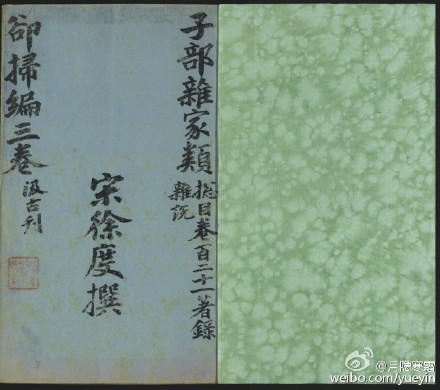 子部雜家類 雜說 總目卷百二十一著錄
宋徐度撰
卻掃編三卷 汲古刊
@月隐寒霜
weibo.com/yueyin